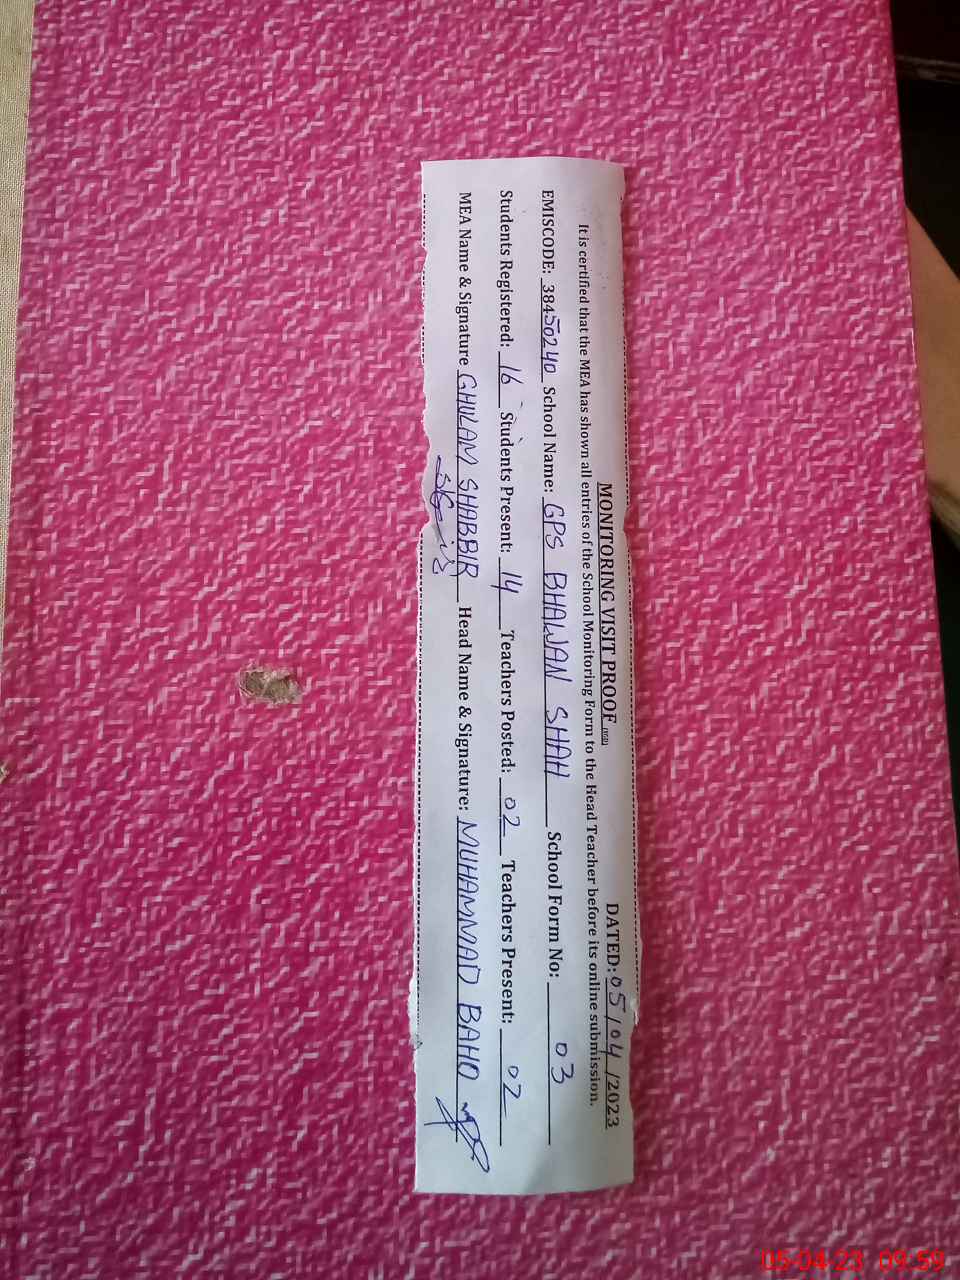 MONITORING VISIT PROOF DATED: 05/04/2023
It is certified that the MEA has shown all entries of the School Monitoring Form to the Head Teacher before its online submission.
EMISCODE: 38450240 School Name: GPS BHAWAN SHAH School Form No: 03
Students Registered: 16 Students Present: 14 Teachers Posted: 02 Teachers Present: 02
MEA Name & Signature GHULAM SHABBIR Head Name & Signature: MUHAMMAD BAHO
05-04-23 09:59